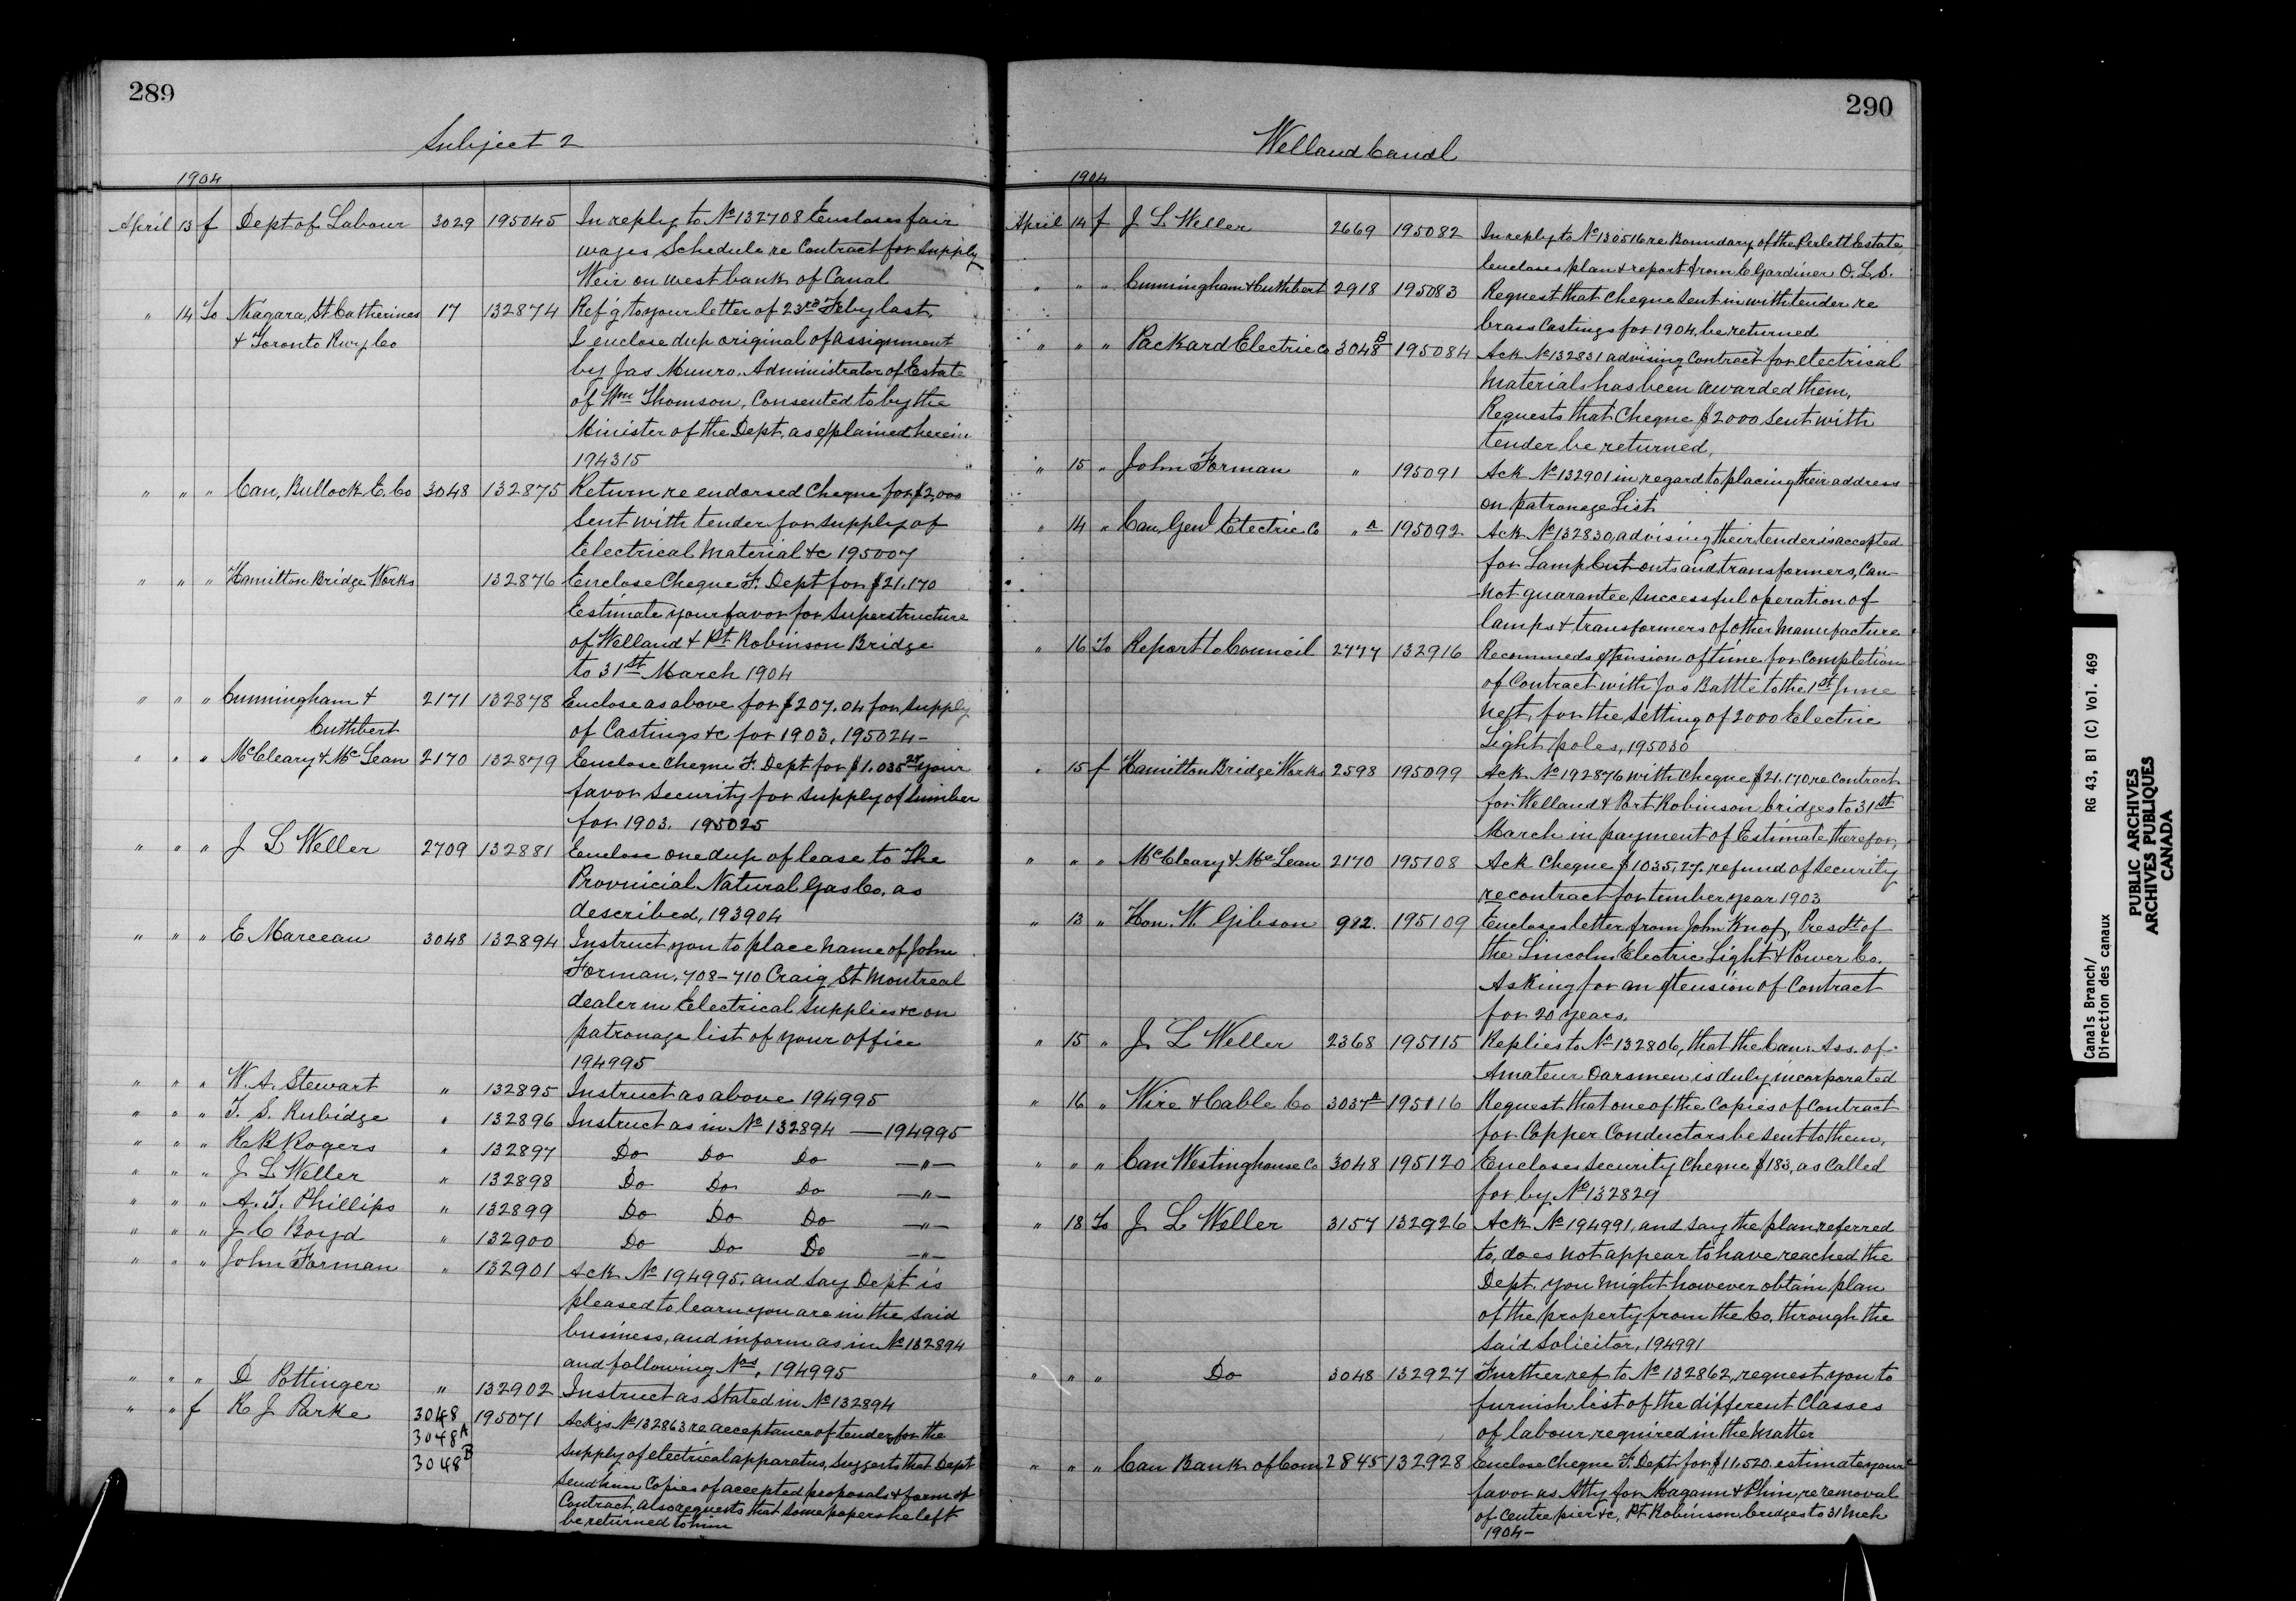 289
Subject 2
1904
April 13 f Dept of Labour 3029 195045 In reply to No 132708 Encloses fair
wages Schedule re Contract for Supply
Weir on west bank of Canal
" 14 To Niagara, St Catherines 17 132874 Ref'g to your letter of 23rd Feby last.
& Toronto Rwy Co I enclose dup original of assignment
by Jas Munro, Administrator of Estate
of Wm Thomson, Consented to by the
Minister of the Dept, as explained herein
194315
" " " Can, Bullock E. Co 3048 132875 Return re endorsed Cheque for $2,000
Sent with tender for supply of
Electrical Material &c 195007
" " " Hamilton Bridge Works 132876 Enclose Cheque F. Dept for $21.170
Estimate your favor for Superstructure
of Welland & Pt Robinson Bridge
to 31st March 1904
" " " Cunningham & 2171 132878 Enclose as above for $207.04 for supply
Cuthbert of Castings &c for 1903, 195024-
" " " McCleary & McLean 2170 132879 Enclose Cheque F. Dept for $1.035 27 your
favor Security for supply of lumber
for 1903. 195025
" " " J L Weller 2709 132881 Enclose one dup of lease to The
Provinicial Natural Gas Co. as
described, 193904
" " " E Marceau 3048 132894 Instruct you to place name of John
Forman, 708-710 Craig St Montreal
dealer in Electrical Supplies &c on
patronage list of your office
194995
" " " W. A. Stewart " 132895 Instruct as above 194995
" " " T. S. Rubidge " 132896 Instruct as in No 132894 — 194995
" " " R R Rogers " 132897 Do Do Do —"—
" " " J L Weller " 132898 Do Do Do —"—
" " " A. T. Phillips " 132899 Do Do Do —"—
" " " J C Boyd " 132900 Do Do Do —"—
" " " John Forman " 132901 Ack No 194995, and say Dept is
pleased to learn you are in the said
business, and inform as in No 132894
and following Nos, 194995
" " " D Pottinger " 132902 Instruct as Stated in No 132894
" " f R J Parke 3048 195071 Ackgs No 132863 re acceptance of tenders for the
3048A supply of electrical apparatus, suggests that Dept
3048B send him Copies of accepted proposals & form of
Contract, also requests that some papers he left
be returned to him
290
Welland Canal
1904
April 14 f J L Weller 2669 195082 In reply to No 130516 re Boundary of the Perlett Estate,
Encloses plan & report from C Gardiner O. L. S.
" " " Cunningham & Cuthbert 2918 195083 Request that cheque sent in with tender re
brass Castings for 1904, be returned
" " " Packard Electric Co 3048B 195084 Ack No 132831 advising Contract for electrical
Materials has been awarded them,
Requests that Cheque $2000 sent with
tender be returned,
" 15 " John Forman " 195091 Ack No 132901 in regard to placing their address
on patronage List
" 14 " Can, Genl Electric Co "A 195092 Ack No 132830, advising their tender is accepted
for Lamp Cut outs and transformers, Can-
not guarantee successful operation of
lamps & transformers of other manufacture
" 16 To Report to Council 2777 132916 Recommeds extension of time for Completion
of Contract with Jos Battle to the 1st June
next, for the setting of 2000 Electric
Light poles, 195030
" 15 f Hamilton Bridge Works 2598 195099 Ack No 192876 with Cheque $21.170, re Contract
for Welland & Port Robinson bridges to 31st
March in payment of Estimate therefor,
" " " McCleary & McLean 2170 195108 Ack Cheque $1035,27. refund of security
re contract for timber year 1903
" 13 " Hon. W. Gibson 982. 195109 Encloses letter from John Knox, Presdt of
the Lincoln Electric Light & Power Co.
Asking for an extension of Contract
for 20 years,
" 15 " J L Weller 2368 195115 Replies to No 132806, that the Can. Ass. of
Amateur Oarsmen is duly incorporated
" 16 " Wire & Cable Co 3037A 195116 Request that one of the Copies of Contract
for Copper Conductors be sent to them,
" " " Can Westinghouse Co 3048 195120 Encloses Security Cheque $183, as Called
for by No 132829
" 18 To J L Weller 3157 132926 Ack No 194991, and say the plan referred
to, does not appear to have reached the
Dept. you might however obtain plan
of the property from the Co, through the
said Solicitor, 194991
" " " Do 3048 132927 Further ref to No 132862, request you to
furnish list of the different Classes
of labour required in the Matter
" " " Can Bank of Com 2845 132928 Enclose Cheque F. Dept for $11,520. estimate your
favor as Atty for Magann & Phin, re removal
of Centre pier &c, Pt Robinson bridges to 31 Mch
1904-
Canals Branch/ RG 43, B1 (C) Vol. 469
Direction des canaux
PUBLIC ARCHIVES
ARCHIVES PUBLIQUES
CANADA